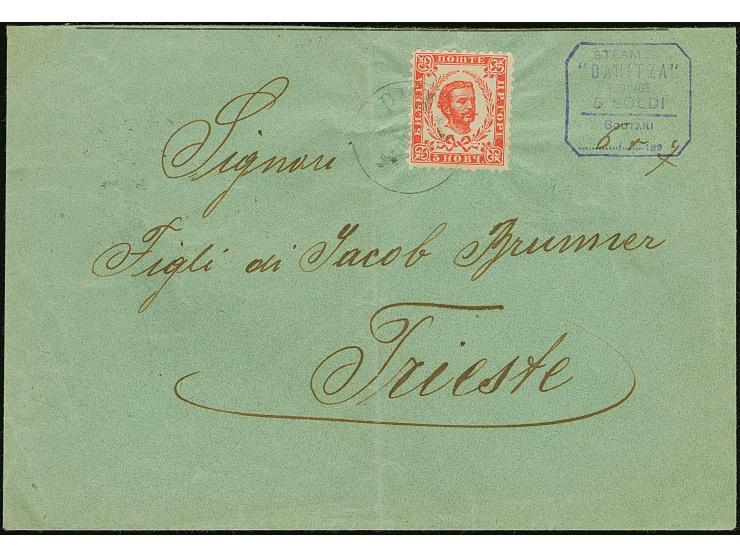 ПОШТЕ
БИЉЕГА
ЦР.ГОРЕ
5 НОВЧ.
STEAMER
"DANITZA"
5 SOLDI
SCUTARI
189
Signori
Figli di Jacob Brunner
Trieste